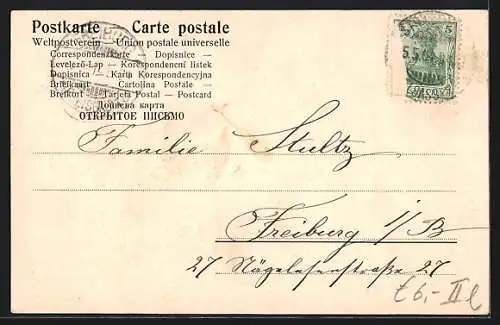 Postkarte Carte postale
Weltpostverein — Union postale universelle
Correspondenzkarte — Dopisnice —
Levelező-Lap — Korespondenční listek
Dopisnica — Karta Korespondencyjna
Brefkaart — Cartolina Postale —
Brefkort — Tarjeta Postal — Postcard
ОТКРЫТОЕ ПИСЬМО
5
Familie Stultz
Freiburg i/B
27 Nägeleseestraße 27